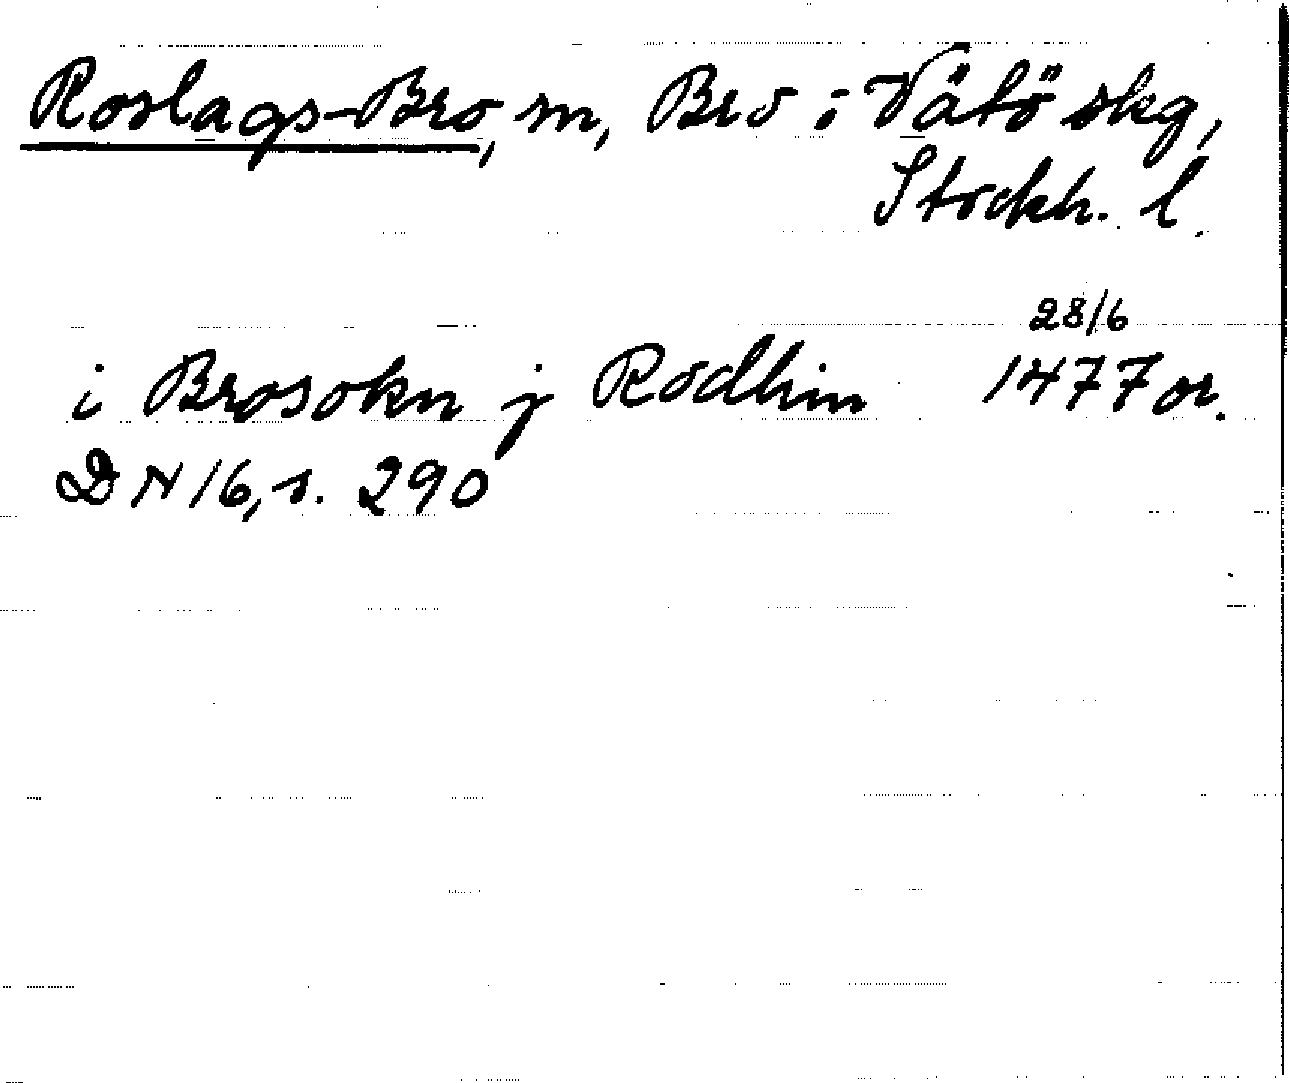 Roslags-Bro, sn, Bro o Vätö skg,
Stockh. l.
28/6
i Brosokn j Rodhin 1477 or.
DN 16, s. 290